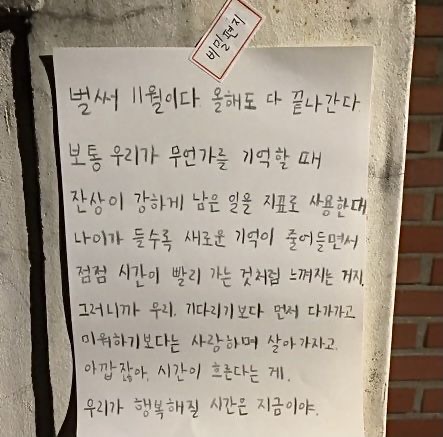 비밀편지
벌써 11월이다. 올해도 다 끝나간다.
보통 우리가 무언가를 기억할 때
잔상이 강하게 남은 일을 지표로 사용한대.
나이가 들수록 새로운 기억이 줄어들면서
점점 시간이 빨리 가는 것처럼 느껴지는 거지.
그러니까 우리. 기다리기보다 먼저 다가가고
미워하기보다는 사랑하며 살아가자고.
아깝잖아. 시간이 흐른다는 게.
우리가 행복해질 시간은 지금이야.